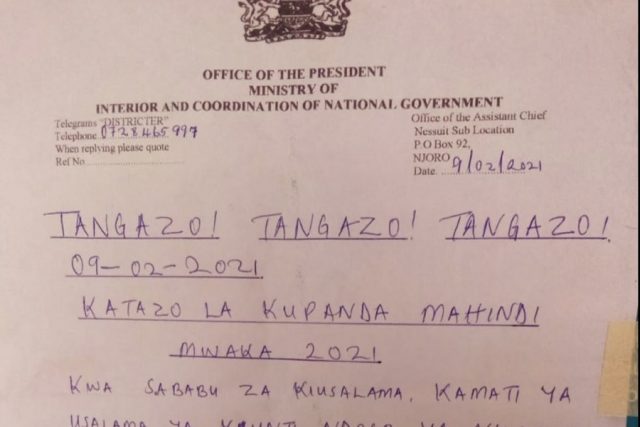 OFFICE OF THE PRESIDENT
MINISTRY OF
INTERIOR AND COORDINATION OF NATIONAL GOVERNMENT
Telegrams "DISTRICTER"
Telephone 0728465997
When replying please quote
Ref No
Office of the Assistant Chief
Nessuit Sub Location
P.O Box 92,
NJORO
Date 9/02/2021
TANGAZO! TANGAZO! TANGAZO!
09-02-2021
KATAZO LA KUPANDA MAHINDI
MWAKA 2021
KWA SABABU ZA KIUSALAMA, KAMATI YA
USALAMA YA